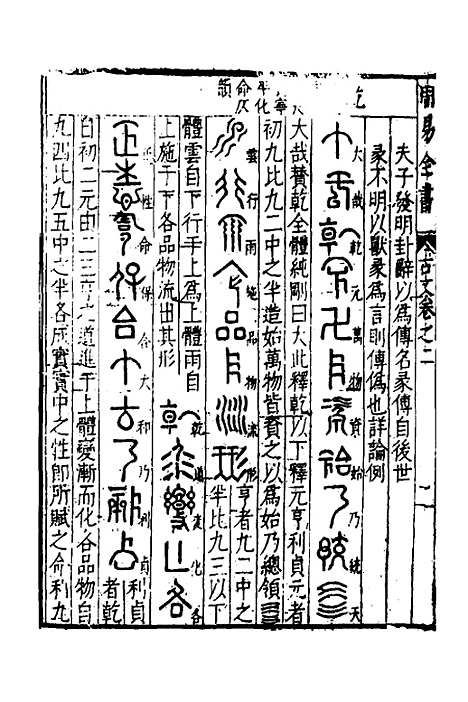 周易全書 古文卷之二 二
夫子發明卦辭以為傳名彖傳自後世
彖不明以獸彖為言則傳偽也詳論例
大哉乾元萬物資始乃統天
大哉贊乾全體純剛曰大此釋乾以下釋元亨利貞元者
初九比九二中之半造始萬物皆資之以為始乃總領
雲行雨施品物流形
亨者九二中之
半比九三以下
體雲自下行乎上為上體雨自
上施于下各品物流出其形
乾道變化各
正性命保合大和乃利貞
利貞
者乾
自初二元由二三亨之道進乎上體變漸而化各品物自
九四比九五中之半各成實實中之性即所賦之命利九